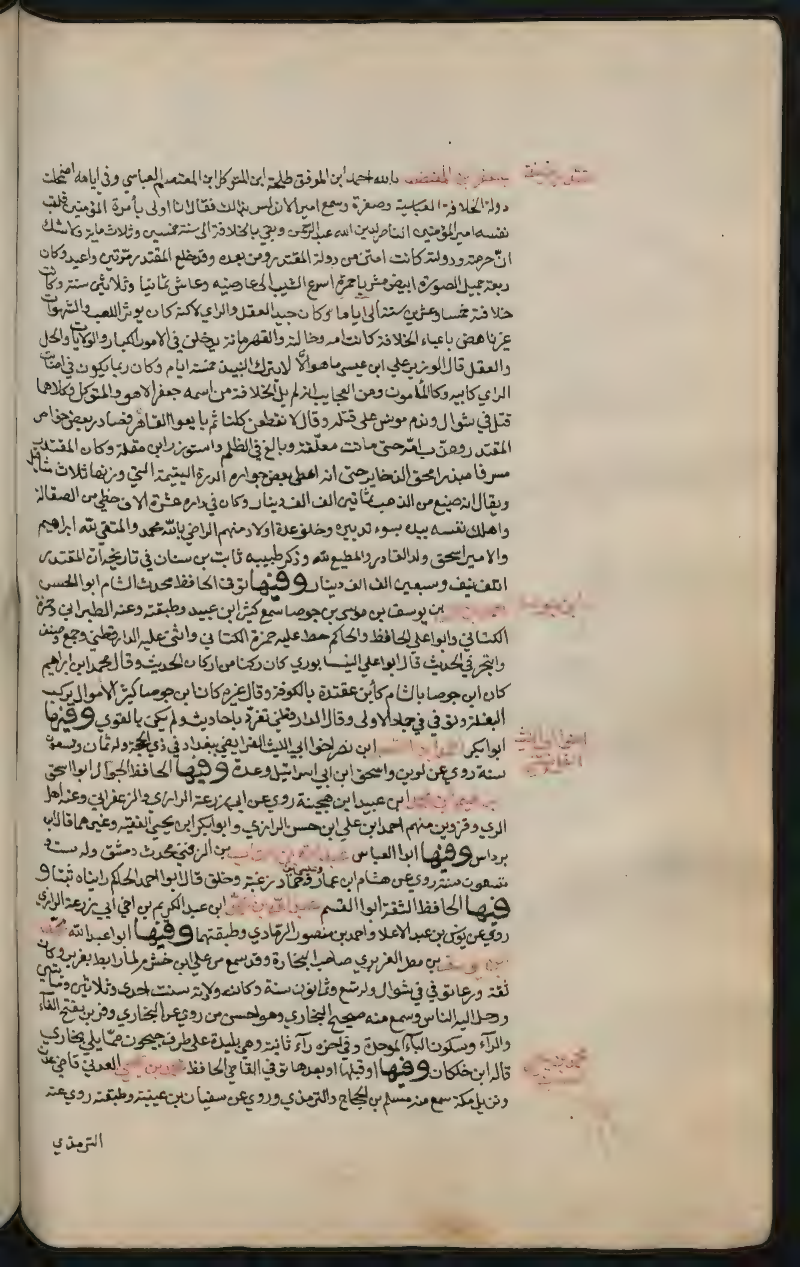 جعفر بن المعتضد بالله احمد ابن الموفق طلحة ابن المتوكل ابن المعتصم العباسي وفي ايامه اضمحلت
دولة الخلافة العباسية وصغرة وسمع امير الاندلس بذالك فقال انا اولى بأمرة المؤمنين فلقب
نفسه امير المؤمنين الناصر لدين الله عبد الرحمن وبقي بالخلافة الى سنة خمسين وثلاث ماية ولا شك
ان حرمته ودولته كانت امتن من دولة المقتدر ومن بعده وقد خلع المقتدر مرتين واعيد وكان
ربعة جميل الصورة ابيض مشربا حمرة اسرع الشيب الى عارضيه وعاش ثمانيا وثلاثين سنة وكانت
خلافته خمسا وعشرين سنة الى اياما وكان جيد العقل والراي لاكنه كان يوثر اللعب والشهوات
غير ناهض باعباء الخلافة كانت امه وخالته والقهرمانة يدخلن في الامور الكبار والولايات والحل
والعقل قال الوزير علي ابن عيسى ما هو الا لا يترك النبيد خمسة ايام وكان ربما يكون في اصالت
الراي كابيه وكالمامون ومن العجايب انه لم يل الخلافة من اسمه جعفر الا هو والمتوكل وكلاهما
قتل في شوال وندم مونس على قتله وقال لا نقطعن كلنا ثم بايعوا القاهر فصادر بعض خواص
المقتدر وعذب امه حتى ماتت معلقة وبالغ في الظلم واستوزر ابن مقلة وكان المقتدر
مسرفا مبذرا محق الذخاير حتى انه اعطى بعض جواره الدرة اليتيمة التي وزنها ثلاث مثاقل
ويقال انه ضيع من الذهب ثمانين الف الف دينار وكان في داره عشرة الاف خصي من الصقالبة
واهلك نفسه بيده بسوء تدبيره وخلف عدة اولاد منهم الراضي بالله محمد والمتقي لله ابراهيم
والامير اسحق ولد القادر والمطيع لله وذكر طبيبه ثابت بن سنان في تاريخه ان المقتدر
اتلف نيف وسبعين الف الف دينار وفيها توفى الحافظ محدث الشام ابوا الحسن
بن يوسف بن موسى بن جوصا سمع كثير ابن عبيد وطبقته وعنه الطبراني وحمزة
الكتاني وابوا علي الحافظ والحاكم حط عليه حمزة الكتاني واثنى عليه الدارقطني وجمع وصنف
وابتحر في الحديث قال ابوا علي النيسابوري كان ركنا من اركان الحديث وقال محمد ابن ابراهيم
كان ابن جوصا بالشام كابن عقدة بالكوفة وقال غيره كان ابن جوصا كثير الأموال يركب
البغلة وتوفى في جماد الاولى وقال الدارقطني تفرد باحاديث ولم يكن بالقوي وفيها
ابوا بكر ابن نصر اخوا ابي الليث الفرايضي ببغداد في ذي الحجة وله ثمان وتسعون
سنة روى عن لوين واسحق ابن ابي اسرائيل وعدة وفيها الحافظ الجوال ابوا اسحق
ابن عبيد ابن جهينة روى عن ابي زرعة الرازي والزعفراني وعنه اهل
الري وقزوين منهم احمد ابن علي ابن حسن الرازي وابوا بكر ابن يحيى الفقيه وغيرهما قاله ابن
برداس وفيها ابوا العباس بن الزفتي محدث دمشق وله ستة
وتسعون سنة روى عن هشام ابن عمار وعيسى ابن حماد زغبة وخلق قال ابوا احمد الحاكم رايناه ثبتا و
فيها الحافظ الثقة ابوا القسم ابن عبد الكريم بن اخي ابي زرعة الرازي
روى عن يونس بن عبد الاعلا واحمد بن منصور الرمادي وطبقتهما وفيها ابوا عبد الله محمد
بن يوسف بن مطر الفربري صاحب البخارة وقد سمع من علي ابن خشرم لما رابط بفربر وكان
ثقة ورعا توفى في شوال وله تسع وثمانون سنة وكانت ولادته سنت احدى وثلاثين ومايتي
ورحل اليه الناس وسمع منه صحيح البخاري وهو احسن من روى عن البخاري وفربر بفتح الفاء
والراء وسكون الباء الموحدة وفي اخره راء ثانية وهي بليدة على طرف جيحون مما يلي بخارى
قاله ابن خلكان وفيها او قبلها او بعدها توفى القاضي الحافظ محمد بن يحيى العدني قاضي عدن
ونزيل مكة سمع منه مسلم بن الحجاج والترمذي وروى عن سفيان بن عيينة وطبقته روى عنه
الترمذي